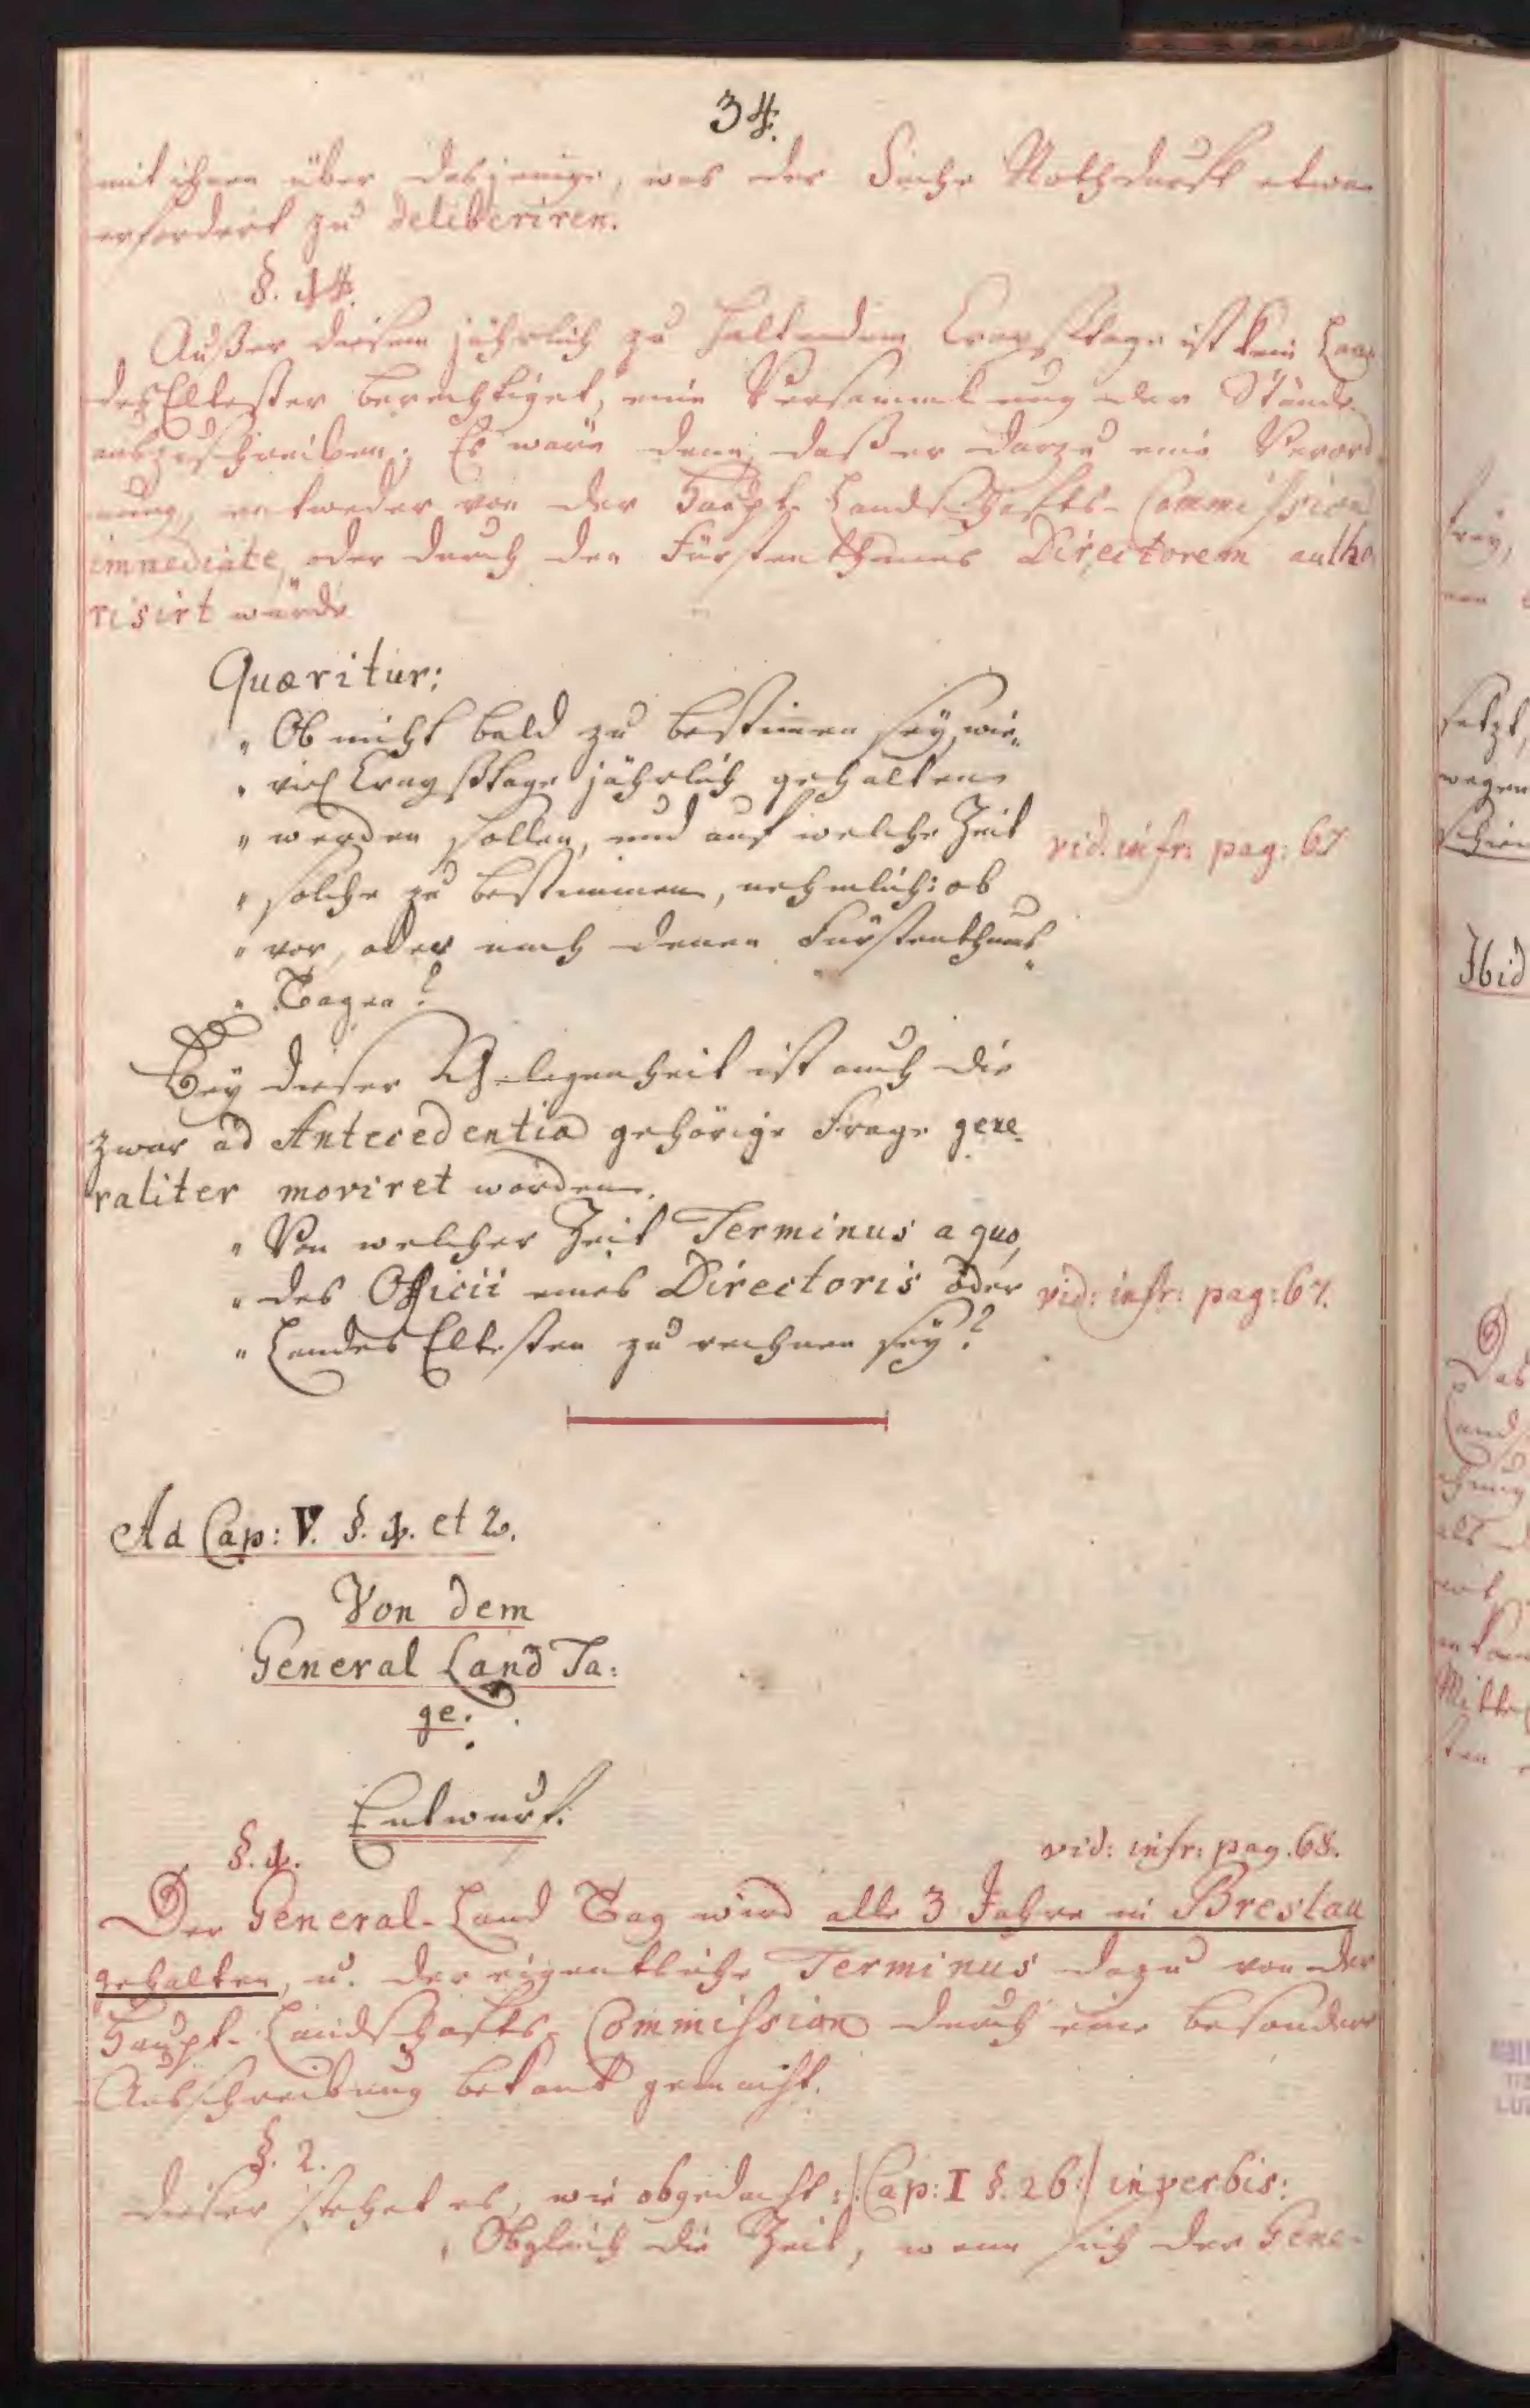 34.
mit ihnen über dasjenige, was der Sache Nothdurft etwan
erfordert zu deliberiren.
§. 14.
Außer diesem jährlich zu haltenden Crayßtage ist kein Lan-
des Eltester berechtiget, eine Versammlung der Stände
auszuschreiben; Es wäre denn, daß er darzu eine Verord-
nung, entweder von der Haupt-Landschafts-Commission
immediate, oder durch den Fürstenthums Directorem autho
risirt würde
Quæritur:
" Ob nicht bald zu bestimmen sey, wie-
" viel Crayßtage jährlich gehalten
" werden sollen, und auf welche Zeit
vid. infr: pag: 67
" solche zu bestimmen, nehmlich: ob
" vor, oder nach denen Fürstenthums-
" Tagen?
Bey dieser Gelegenheit ist auch die
zwar ad Antecedentia gehörige Frage gene-
raliter moviret worden.
" Von welcher Zeit Terminus a quo,
" des Officii eines Directoris oder
vid: infr: pag: 67.
" Landes Eltesten zu rechnen sey?
Ad Cap: V. §. 1. et 2.
Von dem
General Land Ta:
ge.
Entwurf:
§. 1.
vid: infr: pag. 68.
Der General-Land Tag wird alle 3 Jahre in Breslau
gehalten, u. der eigentliche Terminus dazu von der
Haupt-Landschafts-Commission durch eine besondere
Ausschreibung bekant gemacht.
§. 2.
Dieser stehet es, wie obgedacht :/: Cap: I §. 26:/ in verbis:
" Obgleich die Zeit, wenn sich der Gene-